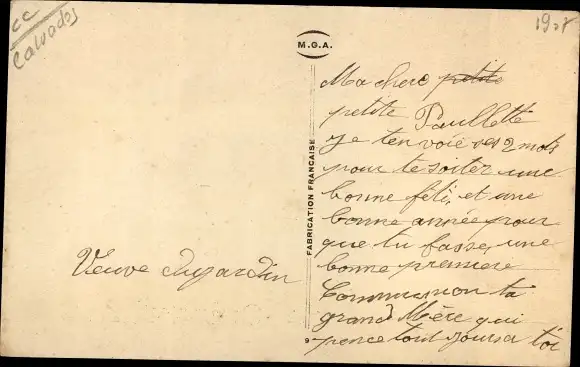 cc
Calvados
M.G.A.
FABRICATION FRANÇAISE
9
Veuve Dujardin
Ma chere petite
petite Paullette
je ten voie ses 2 mots
pour te soiter une
bonne fete, et une
bonne année pour
que tu fasse, une
bonne premiere
Communion ta
grand Mère qui
pence tout jours a toi